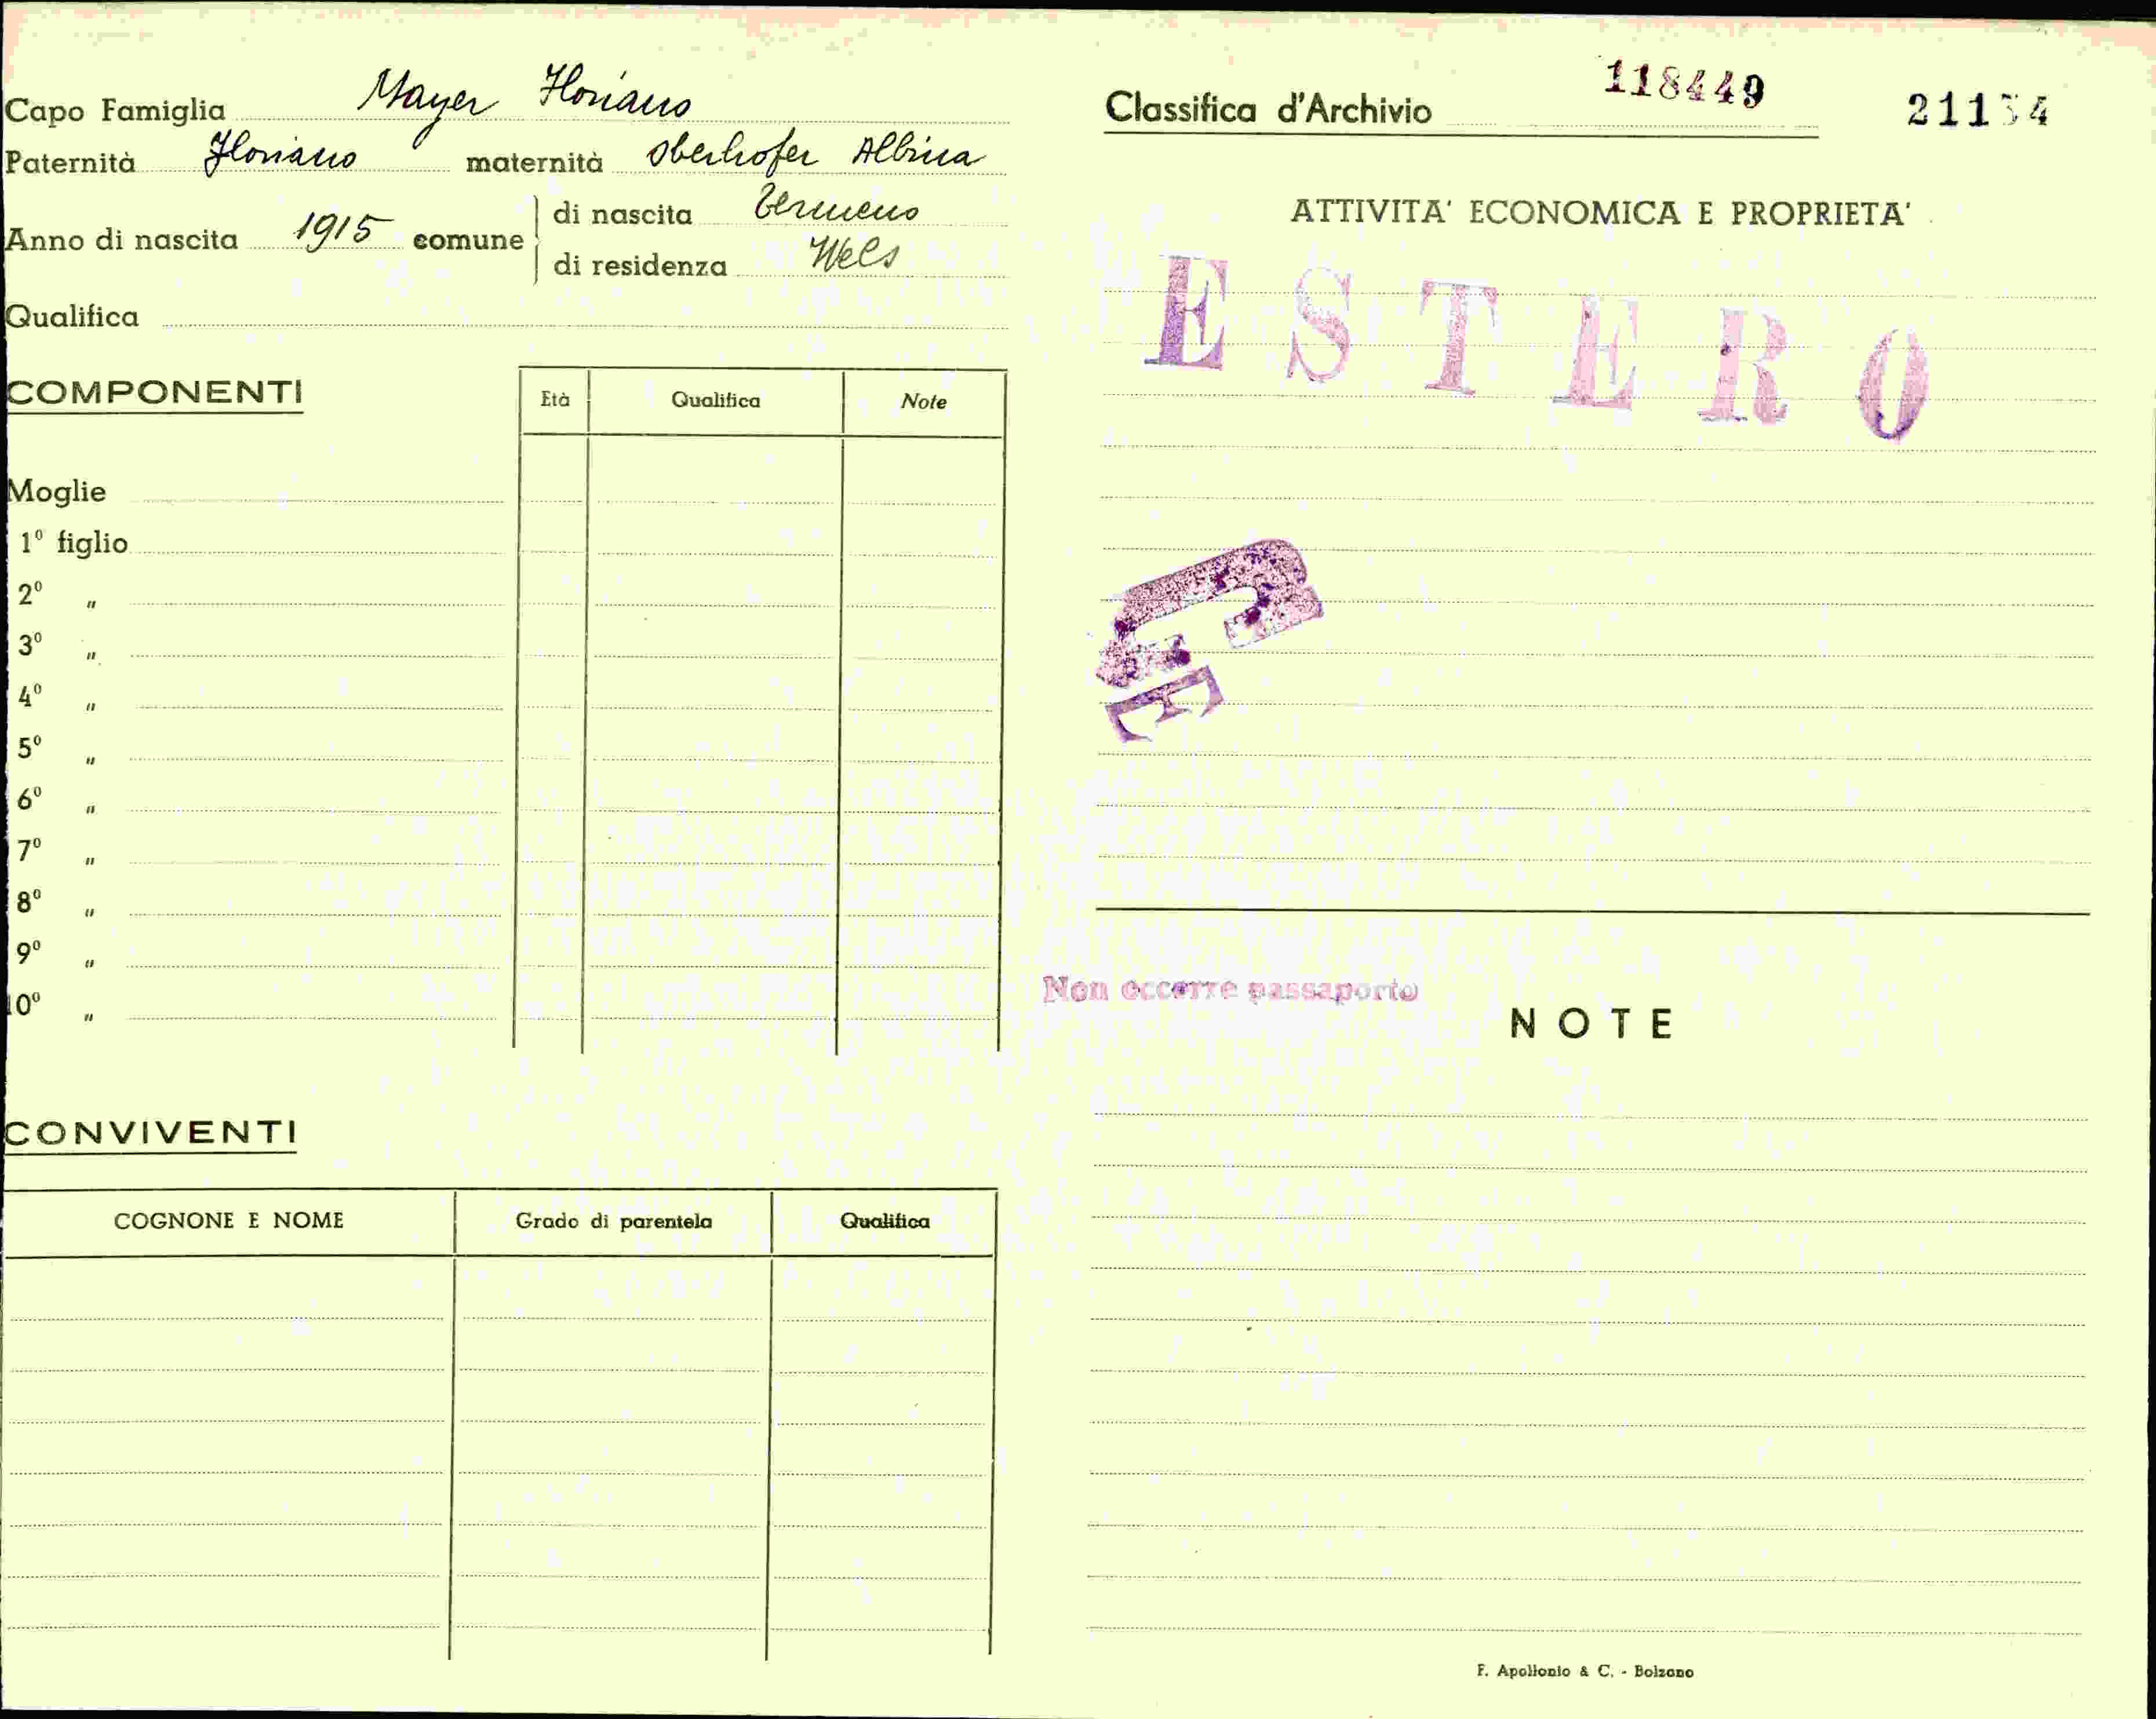 Capo Famiglia Mayer Floriano
Paternità Floriano maternità Oberhofer Albina
Anno di nascita 1915 comune
di nascita Termeno
di residenza Wels
Qualifica
COMPONENTI
Età Qualifica Note
Moglie
1º figlio
2º "
3º "
4º "
5º "
6º "
7º "
8º "
9º "
10º "
CONVIVENTI
COGNONE E NOME Grado di parentela Qualifica
Classifica d'Archivio 118449
ATTIVITA' ECONOMICA E PROPRIETA'
ESTERO
Non occorre passaporto
NOTE
F. Apollonio & C. - Bolzano